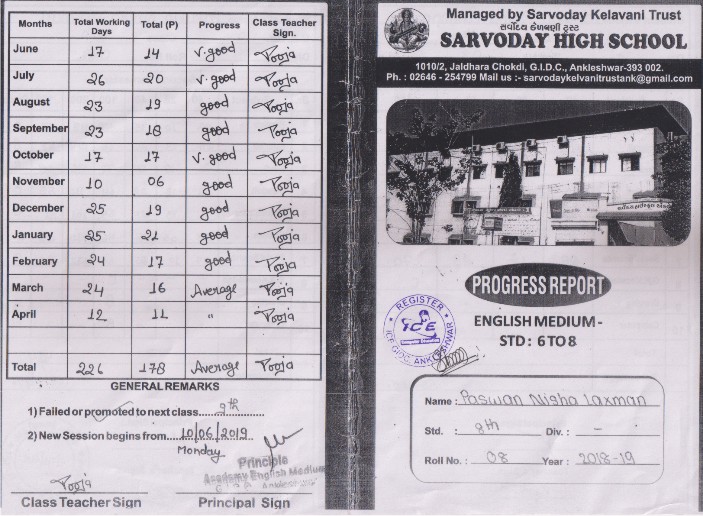 Months Total Working Days Total (P) Progress Class Teacher Sign.
June 17 14 V. good Pooja
July 26 20 V. good Pooja
August 23 19 good Pooja
September 23 18 good Pooja
October 17 17 V. good Pooja
November 10 06 good Pooja
December 25 19 good Pooja
January 25 21 good Pooja
February 24 17 good Pooja
March 24 16 Average Pooja
April 12 11 " Pooja
Total 226 178 Average Pooja
GENERAL REMARKS
1) Failed or promoted to next class......9th......
2) New Session begins from....10/06/2019....
Monday
Principle
Academy English Medium
Ankleshwar
Pooja
Class Teacher Sign Principal Sign
Managed by Sarvoday Kelavani Trust
સર્વોદય કેળવણી ટ્રસ્ટ
SARVODAY HIGH SCHOOL
1010/2, Jaldhara Chokdi, G.I.D.C., Ankleshwar-393 002.
Ph. : 02646 - 254799 Mail us :- sarvodaykelvanitrustank@gmail.com
PROGRESS REPORT
REGISTER
ICE
ICE GIDC, ANKLESHWAR
ENGLISH MEDIUM -
STD : 6 TO 8
Name : Paswan Nisha Laxman
Std. : 8th Div. : -
Roll No. : 08 Year : 2018-19